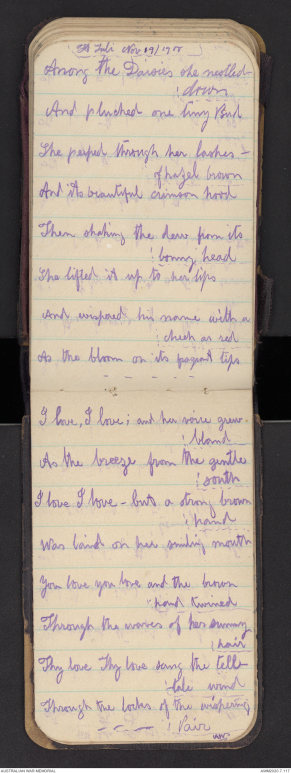 Nov 19/19
Among the Daisies she nestled
down
And plucked one tiny Bud
She peeped through her lashes -
of hazel brown
And its beautiful crimson hood
Then shaking the dew from its
bonny head
She lifted it up to her lips
And wispered his name with a
cheek as red
As the bloom on its tips
I love, I love; and her voice grew
bland
As the breeze from the gentle
south
I love I love - but a strong brown
hand
Was laid on her smiling mouth
You love you love and the brown
hand twined
Through the waves of her sunny
hair
Thy love Thy love sang the tell-
tale wind
Through the locks of the wispering
Pair
AUSTRALIAN WAR MEMORIAL